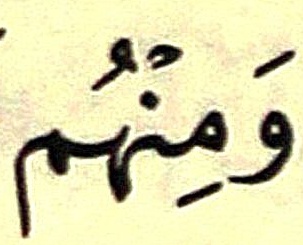 وَمِنْهُم